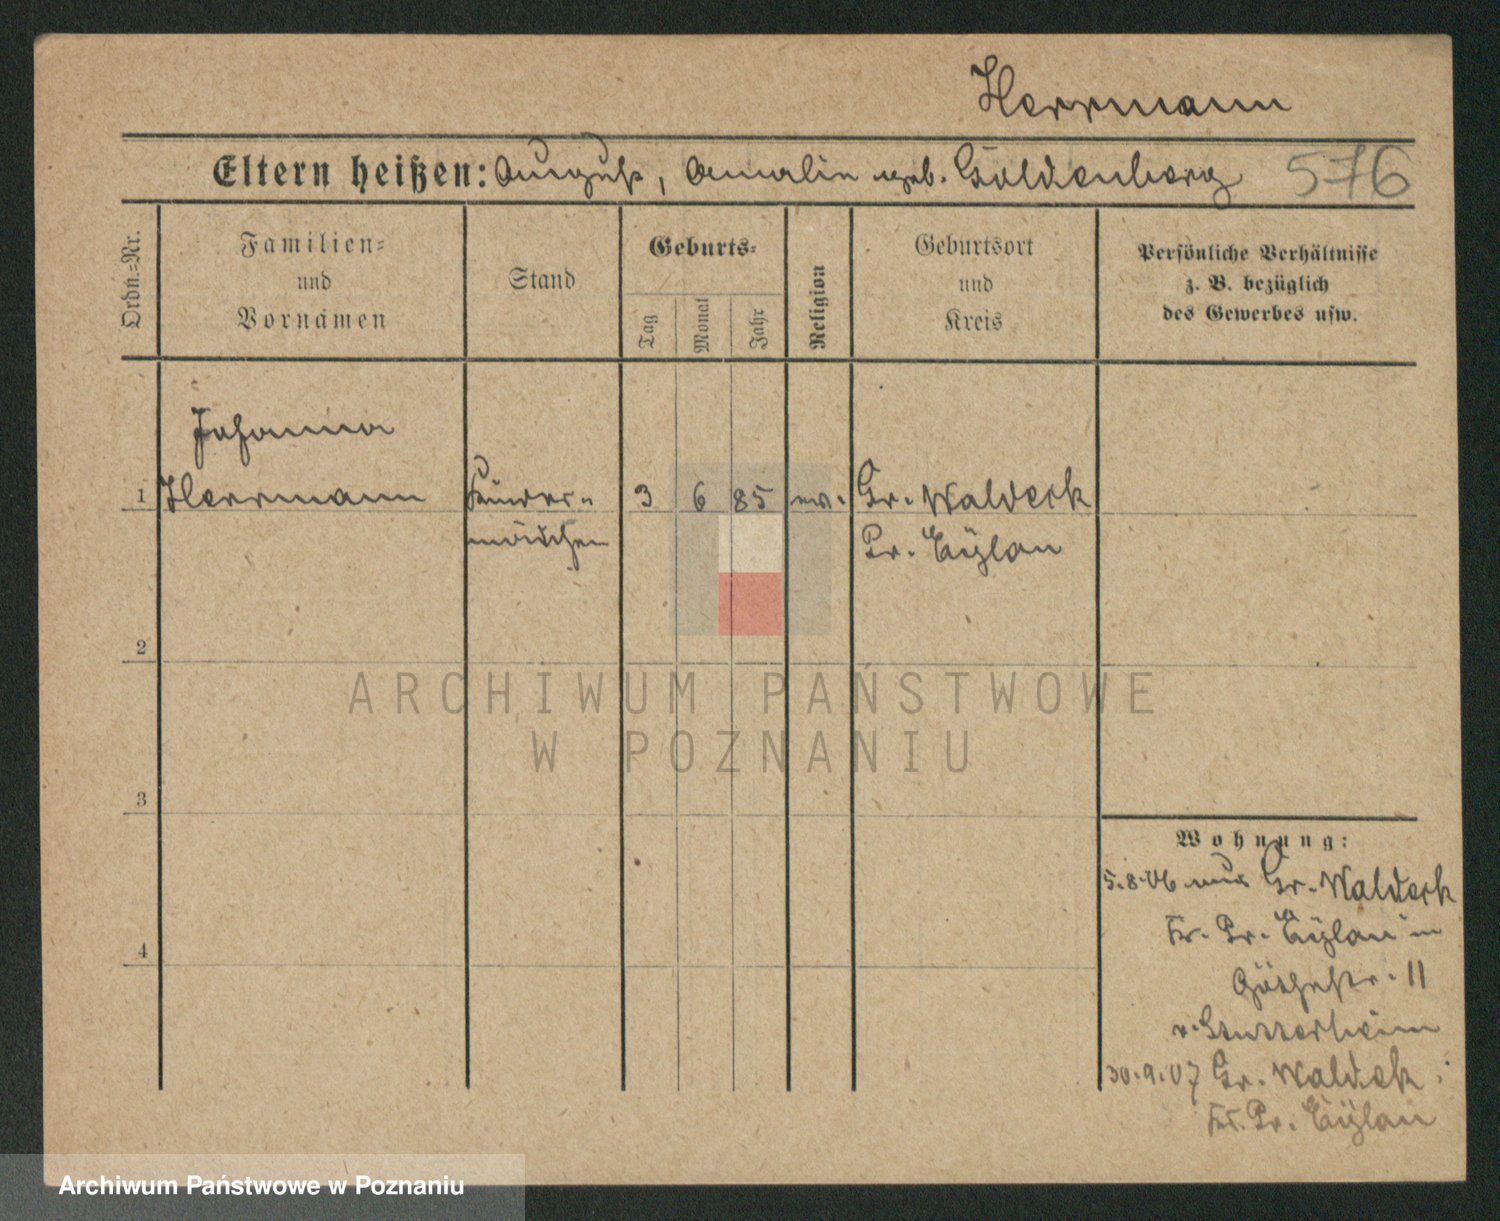 Herrmann
Eltern heißen: August, Amalie geb. Goldenberg 576
Ordn.=Nr.
Familien=
und
Vornamen
Stand
Geburts=
Tag
Monat
Jahr
Religion
Geburtsort
und
Kreis
Persönliche Verhältnisse
z. B. bezüglich
des Gewerbes usw.
Johanna
1 Herrmann Kinder= 3 6 85 ev. Gr. Waldeck
mädchen Pr. Eylau
2
ARCHIWUM PAŃSTWOWE
W POZNANIU
3
Wohnung:
5.8.06 aus Gr. Waldeck
Kr. Pr. Eylau in
4
Göthestr. 11
v.
30.9.07 Gr. Waldeck
Kr. Pr. Eylau
Archiwum Państwowe w Poznaniu